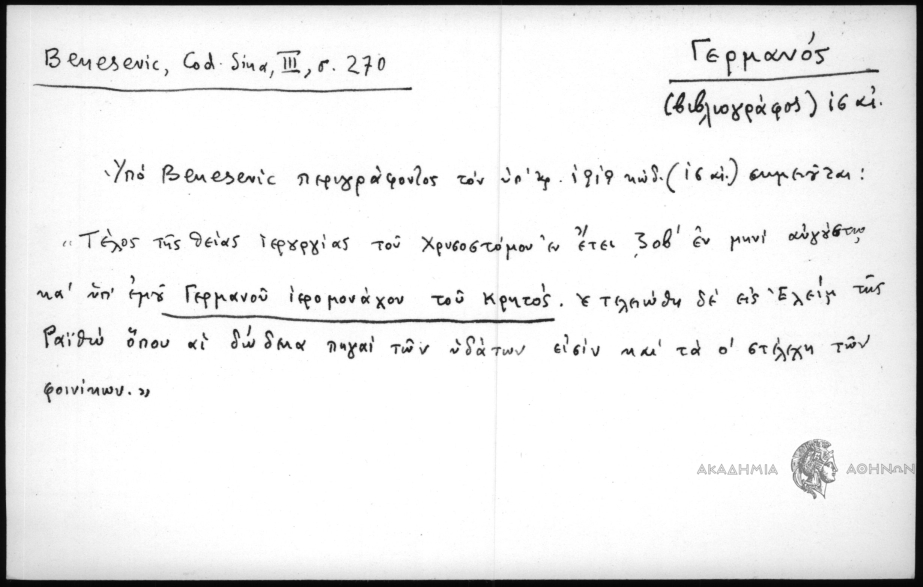 Benesevic, Cod. Sina, III, σ. 270
Γερμανός
(βιβλιογράφος) ις αἰ.
Ὑπό Benesevic περιγράφοντος τόν ὑπ' ἀρ. 1919 κώδ. (ις αἰ.) σημειοῦται:
"Τέλος τῆς θείας ἱερυργίας τοῦ Χρυσοστόμου ἐν ἔτει ζοβ' ἐν μηνί αὐγύστῳ
κα' ὑπ' ἐμοῦ Γερμανοῦ ἱερομονάχου τοῦ Κρητός. ἐτελειώθη δέ εἰς Ἐλείμ τῆς
Ραϊθώ ὅπου αἱ δώδεκα πηγαί τῶν ὑδάτων εἰσίν καί τά ο' στελέχη τῶν
φοινίκων."
ΑΚΑΔΗΜΙΑ ΑΘΗΝΩΝ